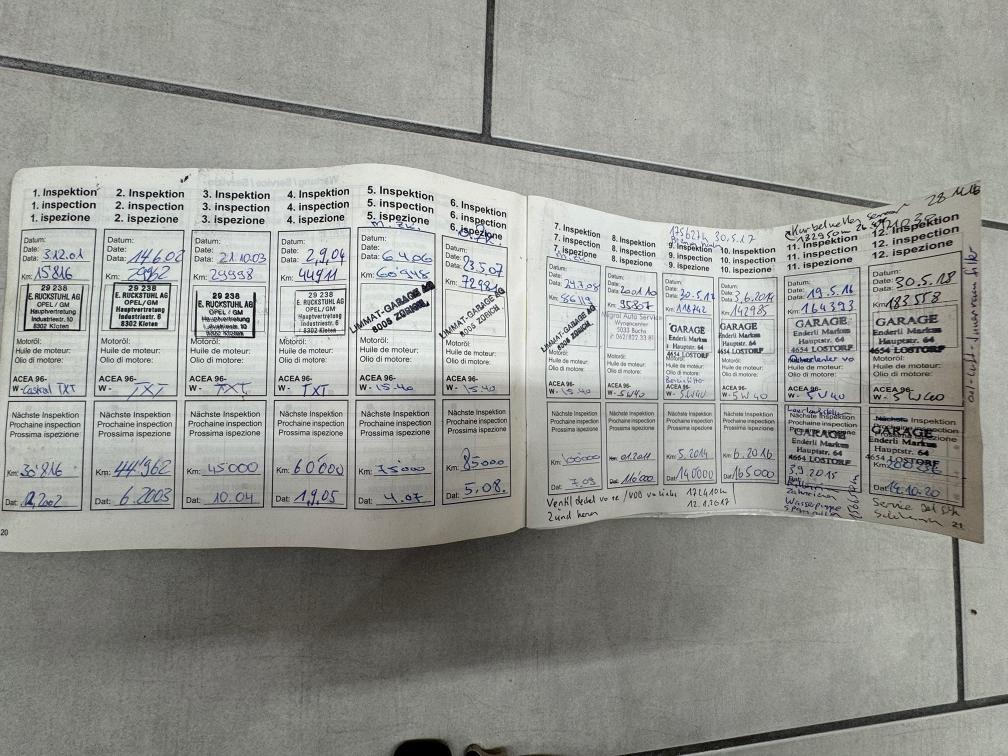 1. Inspektion
1. inspection
1. ispezione
Datum:
Date:
Data: 3.12.01
Km: 15'816
29 238
E. RUCKSTUHL AG
OPEL / GM
Hauptvertretung
Industriestr. 10
8302 Kloten
Motoröl:
Huile de moteur:
Olio di motore:
ACEA 96-
W - Castrol TXT
Nächste Inspektion
Prochaine inspection
Prossima ispezione
Km: 30'816
Dat: 12.2002
2. Inspektion
2. inspection
2. ispezione
Datum:
Date:
Data: 14.6.02
Km: 29962
29 238
E. RUCKSTUHL AG
OPEL / GM
Hauptvertretung
Industriestr. 6
8302 Kloten
Motoröl:
Huile de moteur:
Olio di motore:
ACEA 96-
W - TXT
Nächste Inspektion
Prochaine inspection
Prossima ispezione
Km: 44'962
Dat: 6.2003
3. Inspektion
3. inspection
3. ispezione
Datum:
Date:
Data: 21.10.03
Km: 29998
29 238
E. RUCKSTUHL AG
OPEL / GM
Hauptvertretung
Industriestr. 10
8302 Kloten
Motoröl:
Huile de moteur:
Olio di motore:
ACEA 96-
W - TXT
Nächste Inspektion
Prochaine inspection
Prossima ispezione
Km: 45'000
Dat: 10.04
4. Inspektion
4. inspection
4. ispezione
Datum:
Date:
Data: 2.9.04
Km: 44911
29 238
E. RUCKSTUHL AG
OPEL / GM
Hauptvertretung
Industriestr. 6
8302 Kloten
Motoröl:
Huile de moteur:
Olio di motore:
ACEA 96-
W - TXT
Nächste Inspektion
Prochaine inspection
Prossima ispezione
Km: 60'000
Dat:
5. Inspektion
5. inspection
5. ispezione
Datum:
Date:
Data: 6.4.06
Km:
LIMMAT-GARAGE AG
8005 ZÜRICH
Motoröl:
Huile de moteur:
Olio di motore:
ACEA 96-
W - 15.40
Nächste Inspektion
Prochaine inspection
Prossima ispezione
Km: 75000
Dat: 4.07
6. Inspektion
6. inspection
6. ispezione
Datum:
Date:
Data: 23.5.07
Km: 72981
LIMMAT-GARAGE AG
8005 ZÜRICH
Motoröl:
Huile de moteur:
Olio di motore:
ACEA 96-
W - 15.40
Nächste Inspektion
Prochaine inspection
Prossima ispezione
Km: 85000
Dat: 5.08.
20
7. Inspektion
7. inspection
7. ispezione
Datum:
Date:
Km:
LIMMAT-GARAGE AG
8005 ZÜRICH
Motoröl:
Huile de moteur:
Olio di motore:
ACEA 96-
W - 15.40
Nächste Inspektion
Prochaine inspection
Prossima ispezione
Km: 100000
Dat: 7.09
8. Inspektion
8. inspection
8. ispezione
Datum:
Date:
Km: 95807
Migrol Auto Service
Wynecenter
5033 Buchs
Motoröl:
Huile de moteur:
Olio di motore:
ACEA 96-
W - 5W40
Nächste Inspektion
Prochaine inspection
Prossima ispezione
Km:
Dat: 116000
30.5.17
9. Inspektion
9. inspection
9. ispezione
Datum:
Date:
Data: 30.5.12
Km: 118742
GARAGE
Enderli Markus
Hauptstr. 64
4654 LOSTORF
Motoröl:
Huile de moteur:
Olio di motore:
ACEA 96-
W - 5W40
Nächste Inspektion
Prochaine inspection
Prossima ispezione
Km: 5.2014
Dat: 140000
10. Inspektion
10. inspection
10. ispezione
Datum:
Date:
Data: 3.6.2014
Km: 142985
GARAGE
Enderli Markus
Hauptstr. 64
4654 LOSTORF
Motoröl:
Huile de moteur:
Olio di motore:
ACEA 96-
W - 5W40
Nächste Inspektion
Prochaine inspection
Prossima ispezione
Km: 6.2016
Dat: 165000
Ventildeckel
Zündkerzen
12.1.2017
11. Inspektion
11. inspection
11. ispezione
Datum:
Date:
Data: 19.5.16
Km: 164393
GARAGE
Enderli Markus
Hauptstr. 64
4654 LOSTORF
Huile de moteur:
Olio di motore:
ACEA 96-
W - 5W40
Nächste Inspektion
Prochaine inspection
Prossima ispezione
GARAGE
Enderli Markus
Hauptstr. 64
4654 LOSTORF
3.9.2015
Zahnriemen
Wasserpumpe
12. Inspektion
12. inspection
12. ispezione
Datum:
Date:
Data: 30.5.18
Km: 183558
GARAGE
Enderli Markus
Hauptstr. 64
4654 LOSTORF
Motoröl:
Huile de moteur:
Olio di motore:
ACEA 96-
W - 5W40
Nächste Inspektion
GARAGE
Enderli Markus
Hauptstr. 64
4654 LOSTORF
Km:
Dat: 14.10.20
Service
21